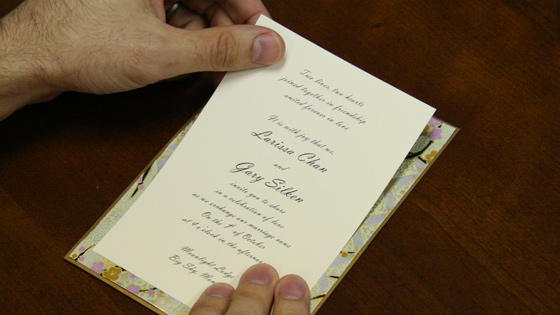 Two lives, two hearts
joined together in friendship
united forever in love
It is with joy that we,
Larissa Chan
and
Gary Silken
invite you to share
in a celebration of love
as we exchange our marriage vows
On the of October
at 4 o'clock in the afternoon
Moonlight
Big Sky,